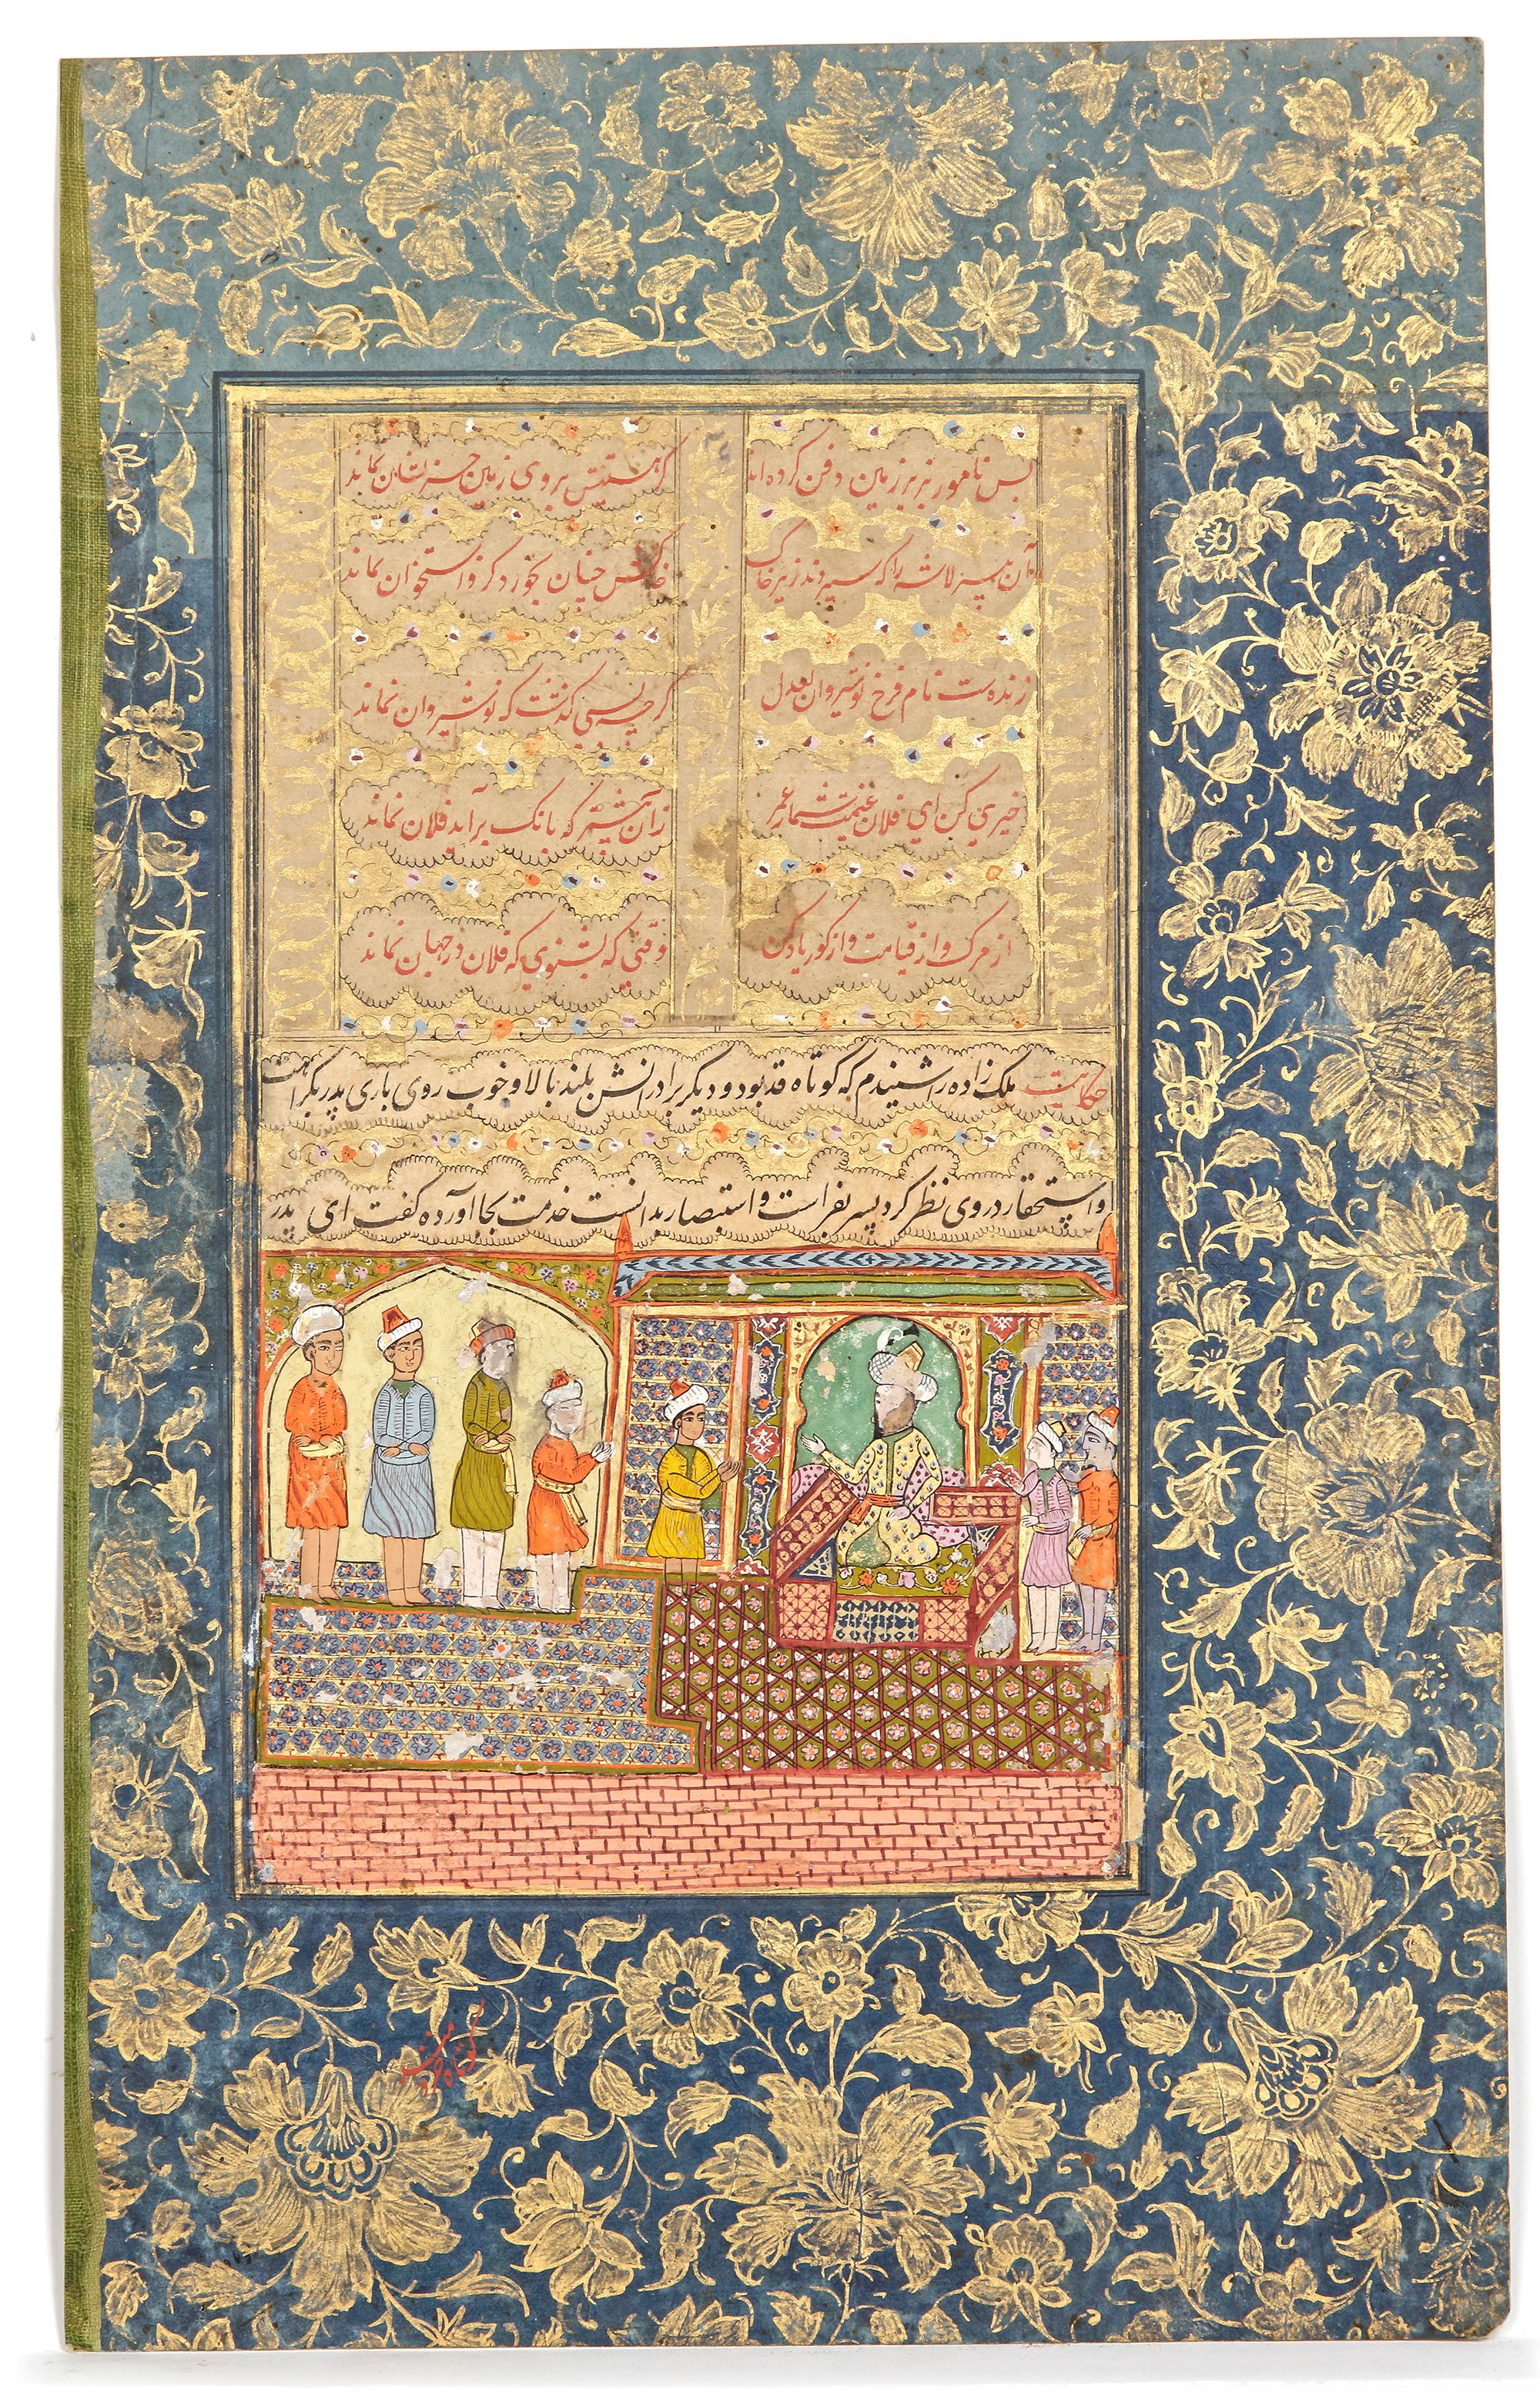 بس نامور بزیر زمین دفن کرده اند
کز هستیش بروی زمین بر نشان نماند
آن پیر لاشه را که سپردند زیر خاک
خاکش چنان بخورد کزو استخوان نماند
زنده ست نام فرخ نوشیروان بعدل
گرچه بسی گذشت که نوشیروان نماند
خیری کن ای فلان غنیمت شمار عمر
زان پیشتر که بانک برآید فلان نماند
از مرک و از قیامت و از کور یاد کن
وقتی که بشنوی که فلان در جهان نماند
حکایت ملک زاده را شنیدم که کوتاه قد بود و دیکر برادرانش بلند بالا و خوب روی باری پدر بکراهت
و استحقار در وی نظر کرد پسر بفراست و استبصار بدانست خدمت بجا آورده کفت ای پدر
کوتاه